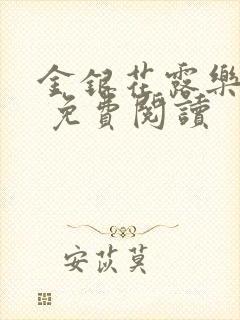 金銀花露樂
免費閱讀
安苡莫